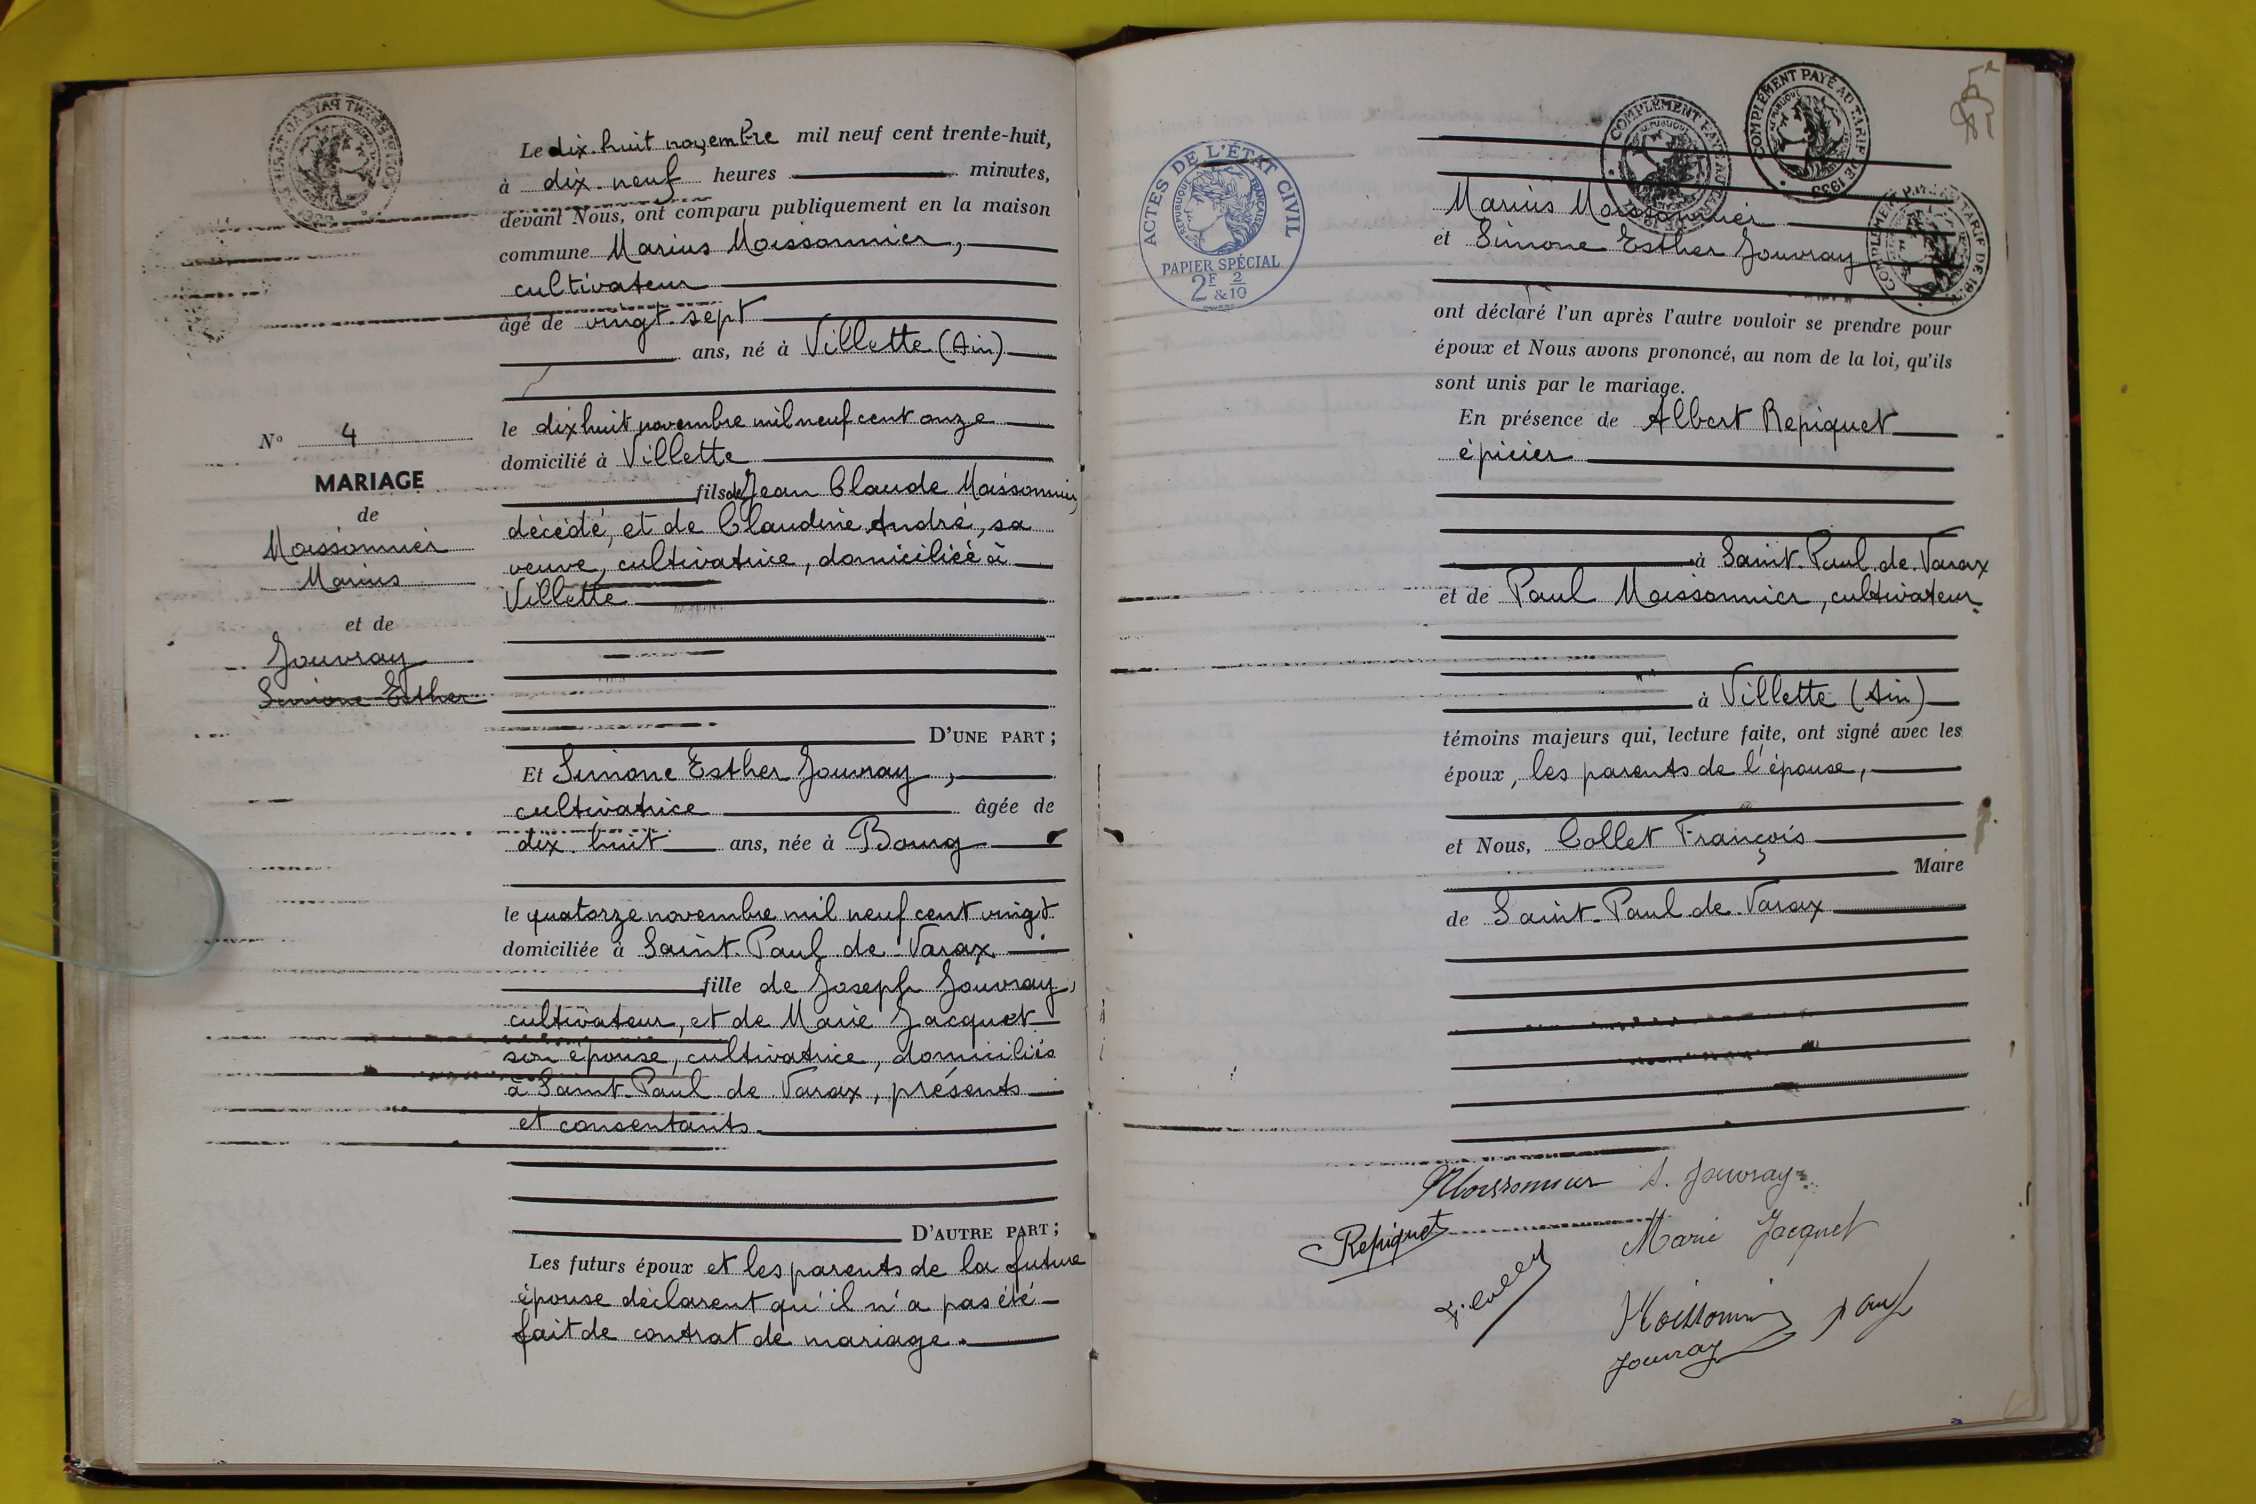 Le dix-huit novembre mil neuf cent trente-huit,
à dix-neuf heures minutes,
devant Nous, ont comparu publiquement en la maison
commune Marius Moissonnier,
cultivateur
âgé de vingt-sept
ans, né à Villette (Ain)
le dix huit novembre mil neuf cent onze
domicilié à Villette
fils de Jean Claude Moissonnier,
décédé, et de Claudine André, sa
veuve, cultivatrice, domiciliée à
Villette
D'UNE PART ;
Et Simone Esther Jouvray,
cultivatrice âgée de
dix-huit ans, née à Bourg
le quatorze novembre mil neuf cent vingt
domiciliée à Saint-Paul de Varax
fille de Joseph Jouvray,
cultivateur, et de Marie Jacquet
son épouse, cultivatrice, domiciliés
à Saint-Paul de Varax, présents
et consentants.
D'AUTRE PART ;
Les futurs époux et les parents de la future
épouse déclarent qu'il n'a pas été
fait de contrat de mariage.
N° 4
MARIAGE
de
Moissonnier
Marius
et de
Jouvray
Simone Esther
ACTES DE L'ÉTAT CIVIL
RÉPUBLIQUE FRANÇAISE
PAPIER SPÉCIAL
2F & 2/10
COMPLÉMENT PAYÉ AU TARIF DE
COMPLÉMENT PAYÉ AU TARIF DE 1935
Marius Moissonnier
et Simone Esther Jouvray
ont déclaré l'un après l'autre vouloir se prendre pour
époux et Nous avons prononcé, au nom de la loi, qu'ils
sont unis par le mariage.
En présence de Albert Repiquet
épicier
à Saint-Paul de Varax
et de Paul Moissonnier, cultivateur
à Villette (Ain)
témoins majeurs qui, lecture faite, ont signé avec les
époux, les parents de l'épouse,
et Nous, Collet François
Maire
de Saint-Paul de Varax
Moissonnier S. Jouvray
Repiquet Marie Jacquet
F. Collet
Moissonnier paul
Jouvray